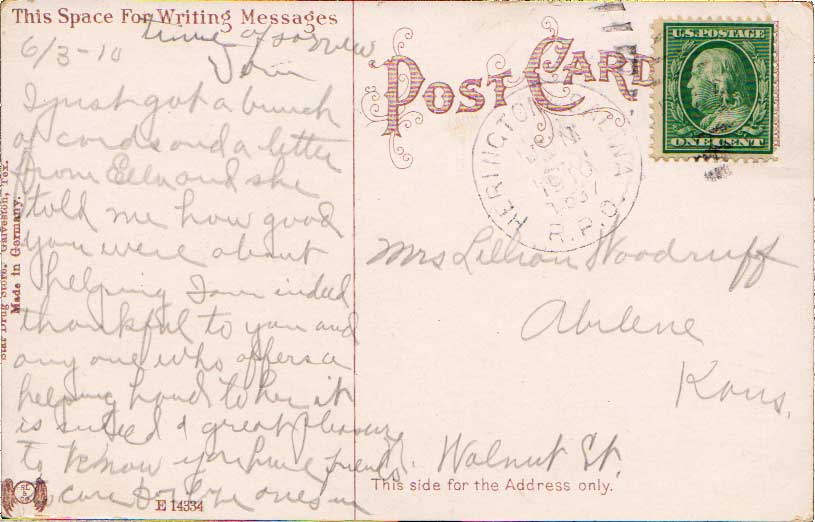 This Space For Writing Messages
6/3-10
time of sorrow
Tom
I just got a bunch
of cards and a letter
from Ella and she
told me how good
you were about
helping I am indeed
thankful to you and
any one who offers a
helping hand to her it
is indeed a great pleasure
to know you have friends
to care for love ones in
E 14334
Star Drug Store. Galveston, Tex.
Made in Germany.
POST CARD
U.S. POSTAGE
ONE CENT
HERINGTON
1910
R.P.O.
Mrs Lillian Woodruff
Abilene
Kans.
Walnut St.
This side for the Address only.